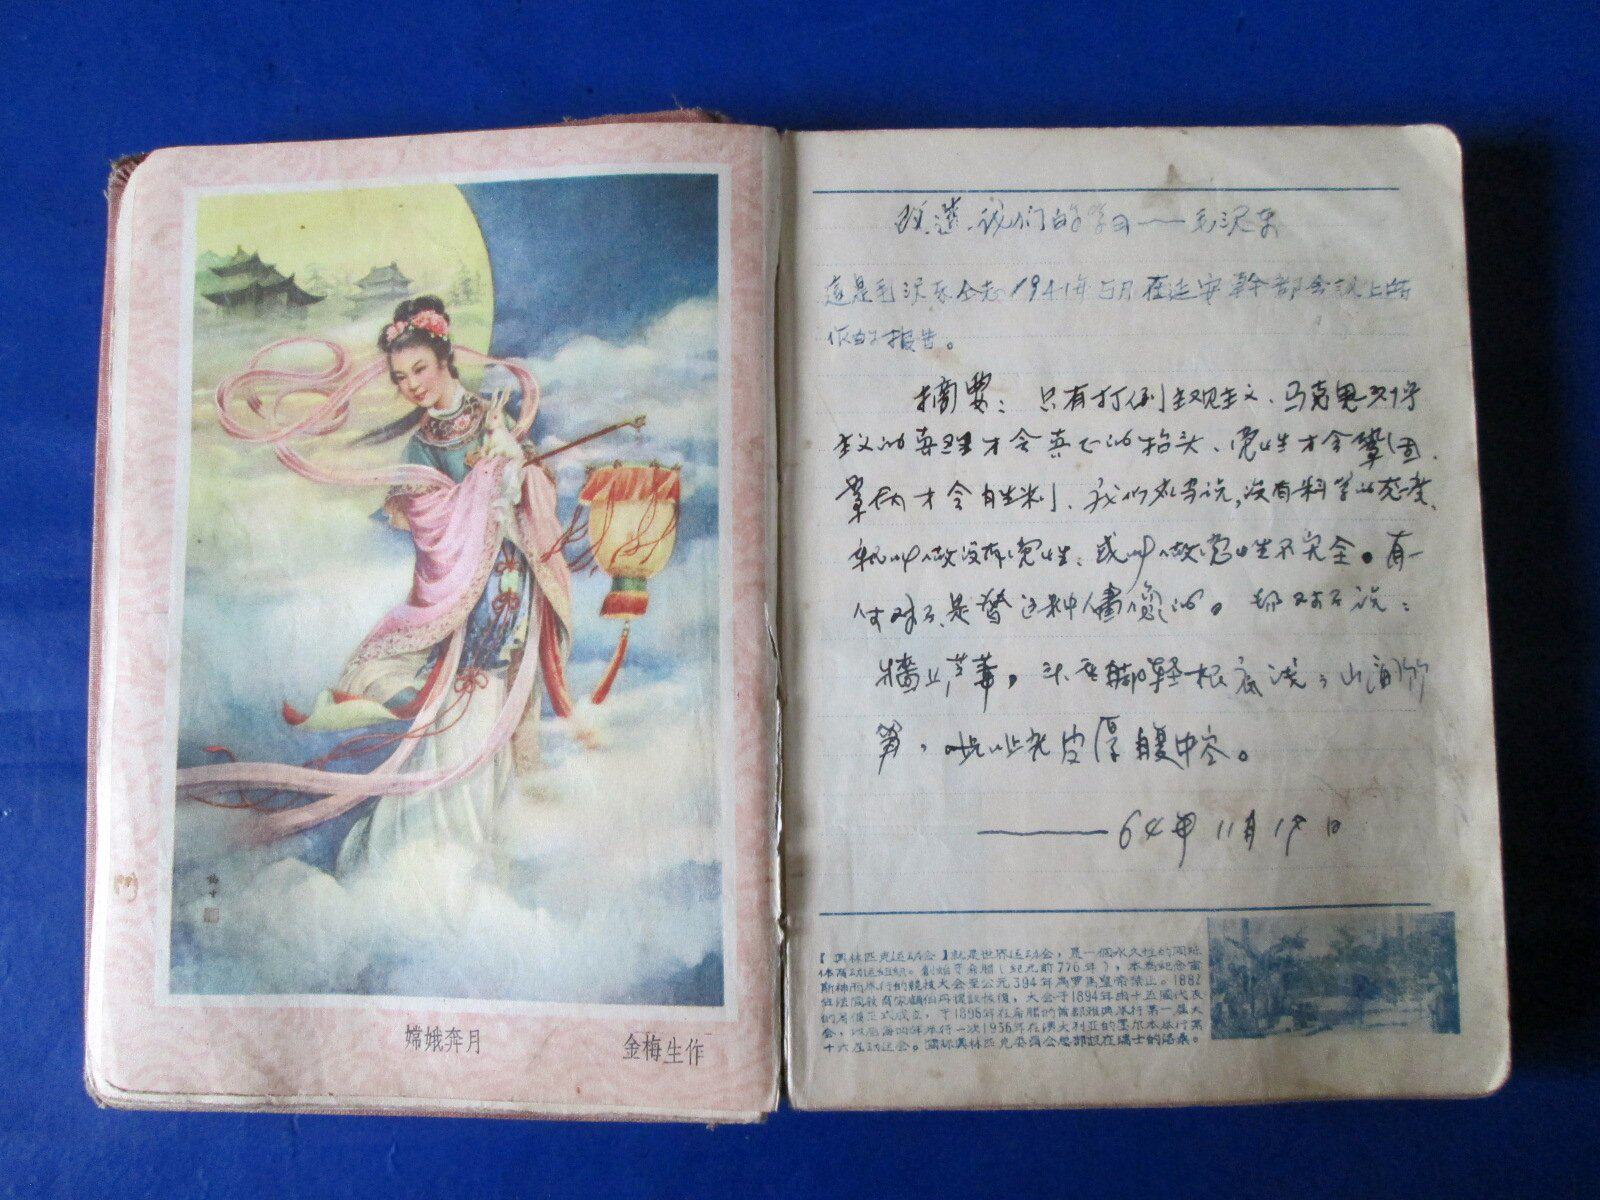 嫦娥奔月
金梅生作
改造我们的学习——毛泽东
這是毛泽东同志1941年5月在延安幹部会议上的
作的报告。
摘要：只有打倒主观主义、马克思列宁
主义的真理才会抬头、党性才会鞏固、
革命才会胜利、我们应当说，没有科学的态度、
就叫做没有党性、或叫做党性不完全。有一
付对子，是替这种人畫像的。那对子说：
墙上芦苇，头重脚轻根底浅；山间竹
笋，嘴尖皮厚腹中空。
——64年11月19日
【奥林匹克运动会】就是世界运动会，是一個永久性的国际
体育运动组织。創始于希腊（紀元前776年），本為紀念宙
斯神而举行的競技大会至公元394年為罗馬皇帝禁止。1892
年法国教育家顧伯丹提議恢復，大会于1894年由十五國代表
的倡议正式成立，于1896年在希腊的首都雅典举行第一届大
会，以后每四年举行一次1956年在澳大利亚的墨尔本举行第
十六届运动会。国际奥林匹克委員会总部設在瑞士的洛桑。